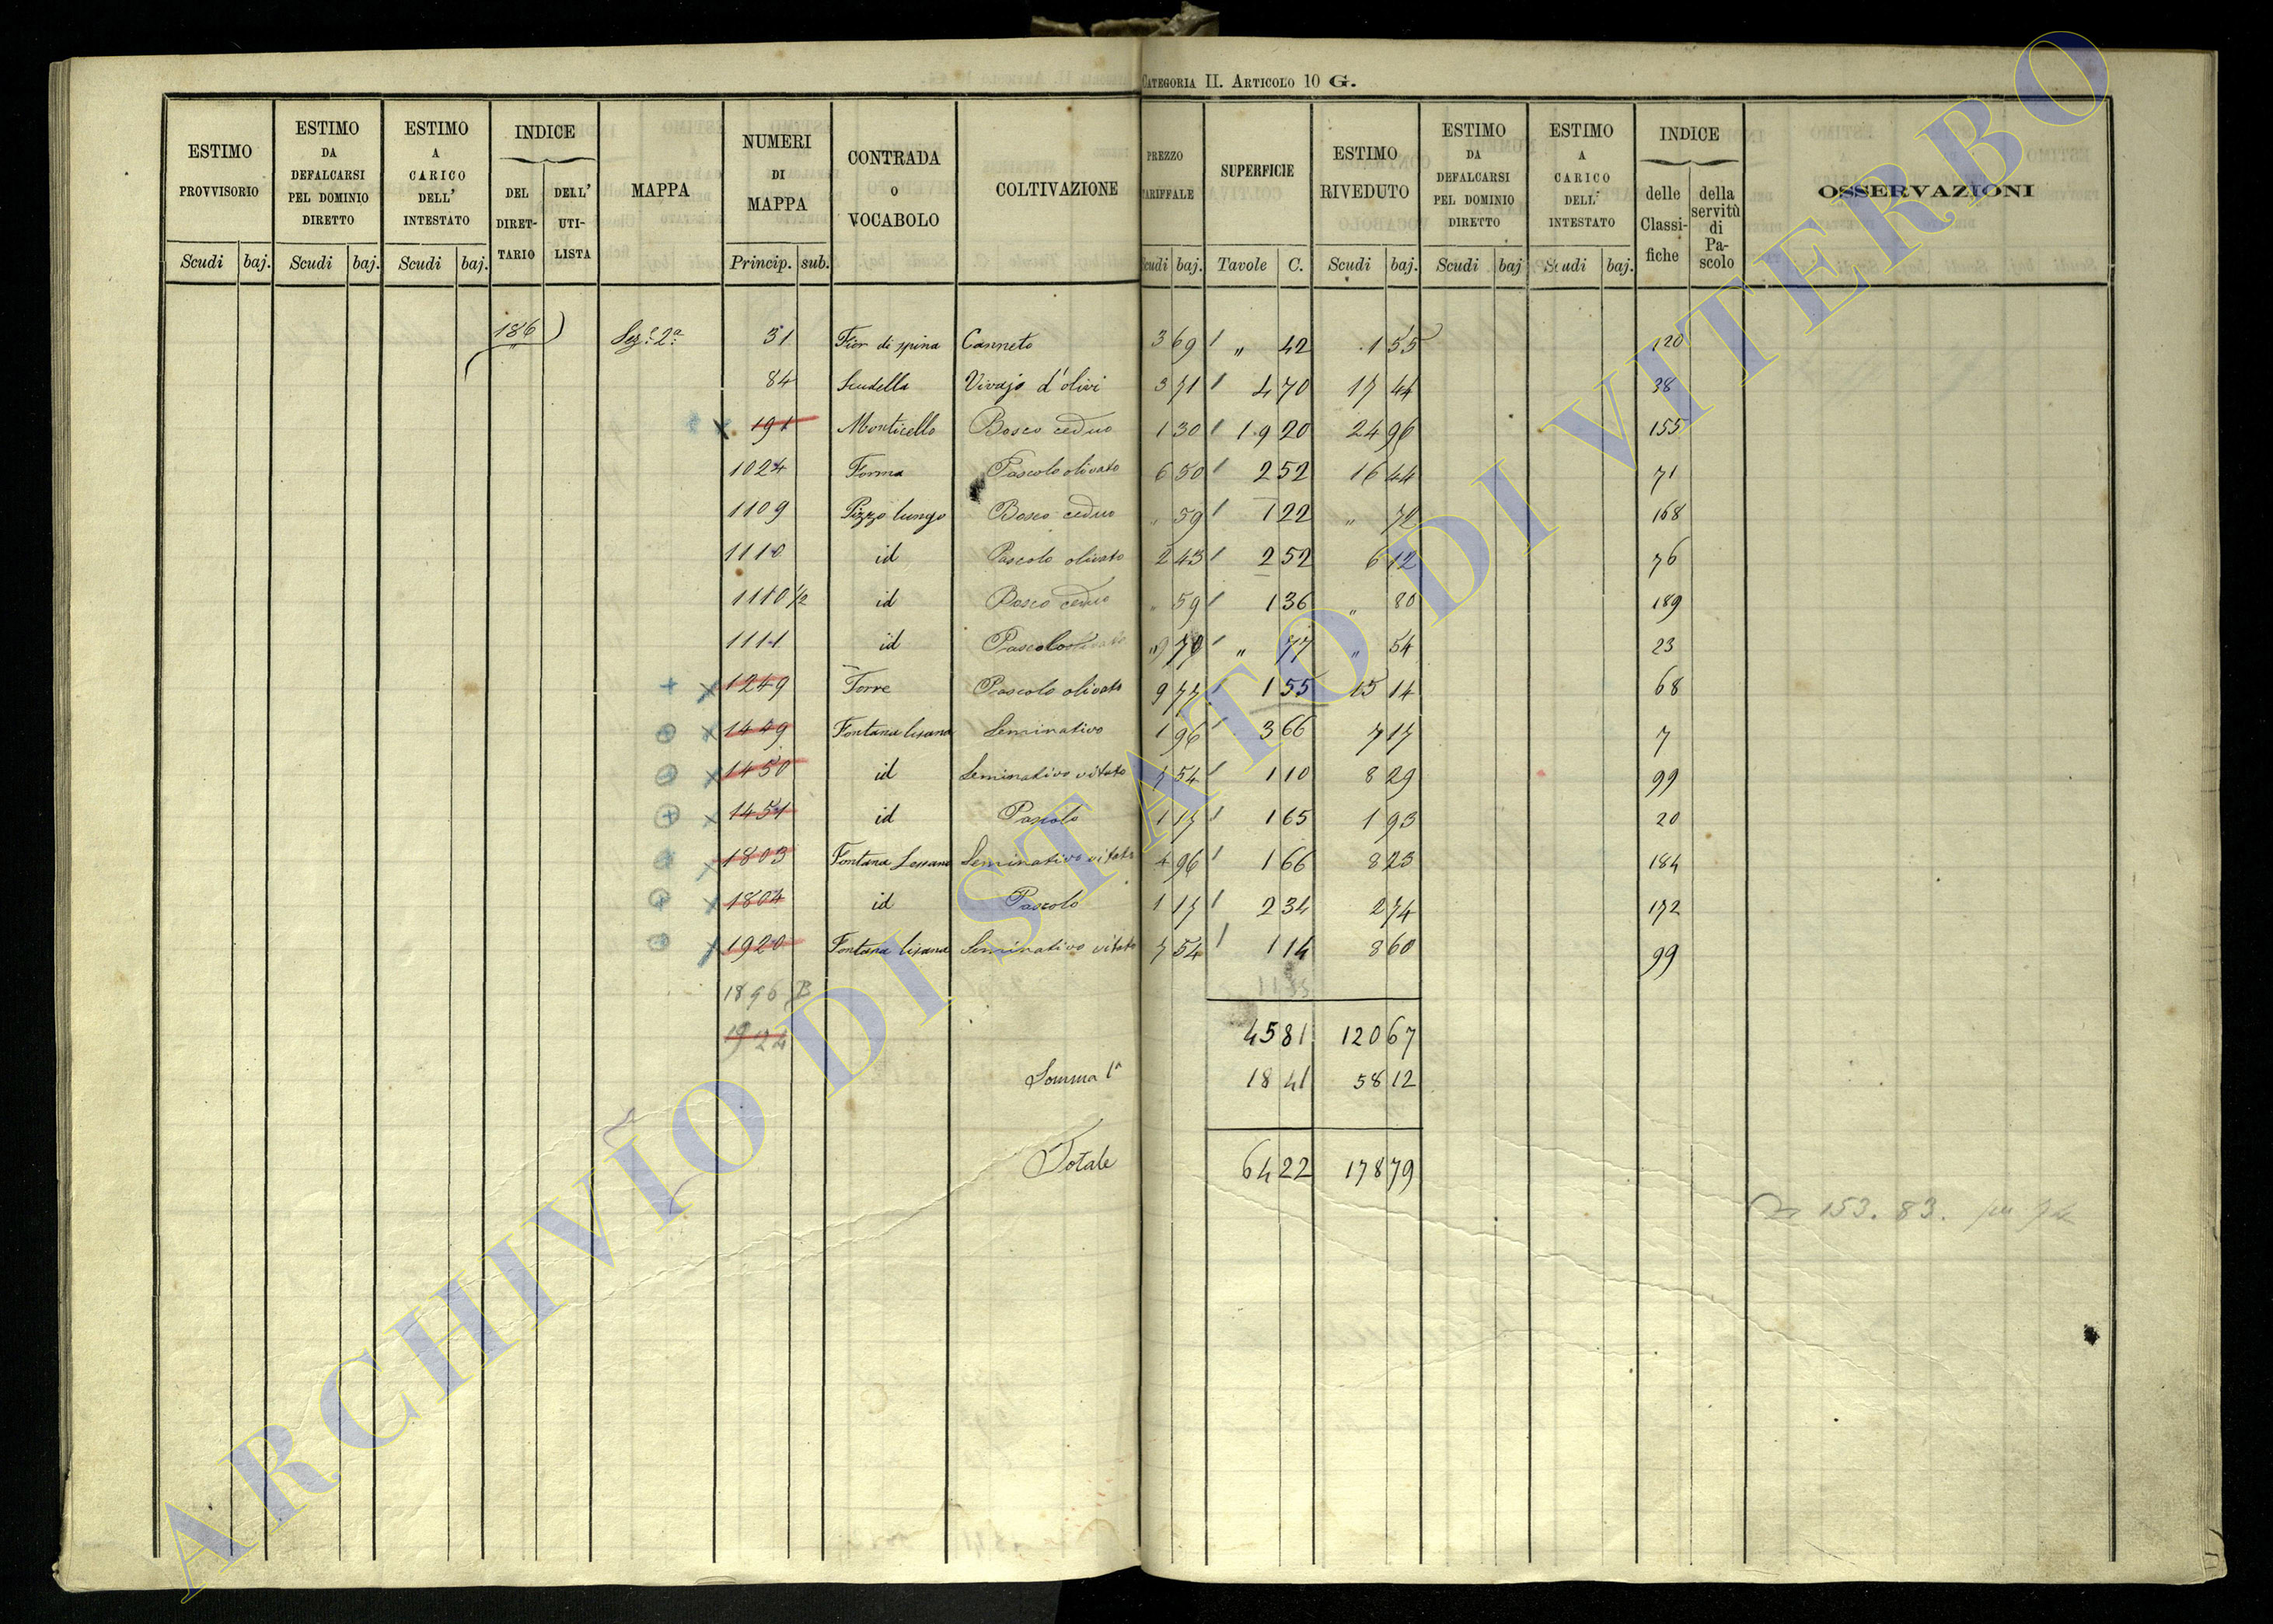 CATEGORIA II. ARTICOLO 10 G.
ESTIMO PROVVISORIO
ESTIMO DA DEFALCARSI PEL DOMINIO DIRETTO
ESTIMO A CARICO DELL' INTESTATO
INDICE
DEL DIRET-TARIO
DELL' UTI-LISTA
MAPPA
NUMERI DI MAPPA
CONTRADA O VOCABOLO
COLTIVAZIONE
PREZZO TARIFFALE
SUPERFICIE
ESTIMO RIVEDUTO
ESTIMO DA DEFALCARSI PEL DOMINIO DIRETTO
ESTIMO A CARICO DELL' INTESTATO
INDICE
delle Classi-fiche
della servitù di Pa-scolo
OSSERVAZIONI
Scudi baj. Scudi baj. Scudi baj. Princip. sub. Scudi baj. Tavole C. Scudi baj. Scudi baj Scudi baj.
186 Sez.e 2a 31 Fior di spina Canneto 3 69 " 42 1 55 120
84 Scudella Vivajo d'olivi 3 71 4 70 17 44 38
191 Monticello Bosco ceduo 1 30 19 20 24 96 155
1024 Forma Pascolo olivato 6 50 2 52 16 44 71
1109 Pizzo lungo Bosco ceduo " 59 1 22 " 72 168
1110 id Pascolo olivato 2 43 2 52 6 12 76
1110 1/2 id Bosco ceduo " 59 1 36 " 80 189
1111 id Pascolo " 70 " 77 " 54 23
1249 Torre Pascolo olivato 9 77 1 55 15 14 68
1449 Fontana lisana Seminativo 1 96 3 66 7 17 7
1450 id Seminativo vitato 7 54 1 10 8 29 99
1451 id Pascolo 1 17 1 65 1 93 20
1803 Fontana Lessana Seminativo vitato 4 96 1 66 8 23 184
1804 id Pascolo 1 17 2 34 2 74 172
1920 Fontana lisana Seminativo vitato 7 54 1 14 8 60 99
1896 B
1924
45 81 120 67
Somma 1a 18 41 58 12
Totale 64 22 178 79
153.83.
ARCHIVIO DI STATO DI VITERBO